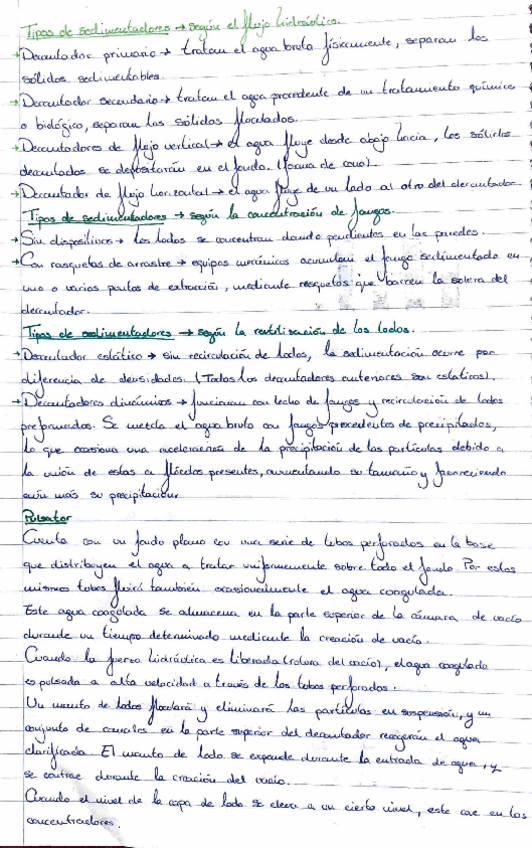 Tipos de sedimentadores → según el flujo hidráulico.
→ Decantador primario → tratan el agua bruta físicamente, separan los
sólidos sedimentables.
→ Decantador secundario → tratan el agua procedente de un tratamiento químico
o biológico, separan los sólidos floculados.
→ Decantadores de flujo vertical → el agua fluye desde abajo hacia, los sólidos
decantados se depositarán en el fondo. (forma de cono)
→ Decantador de flujo horizontal → el agua fluye de un lado al otro del decantador.
Tipos de sedimentadores → según la concentración de fangos.
→ Sin dispositivos → los lodos se concentran dando pendientes en las paredes.
→ Con rasquetas de arrastre → equipos mecánicos acumulan el fango sedimentado en
uno o varios puntos de extracción, mediante rasquetas que barren la solera del
decantador.
Tipos de sedimentadores → según la reutilización de los lodos.
→ Decantador estático → sin recirculación de lodos, la sedimentación ocurre por
diferencia de densidades. (Todos los decantadores anteriores son estáticos).
→ Decantadores dinámicos → funcionan con lecho de fangos y recirculación de lodos
preformados. Se mezcla el agua bruta con fangos procedentes de precipitados,
lo que ocasiona una aceleración de la precipitación de las partículas debido a
la unión de estas a flóculos presentes, aumentando su tamaño y favoreciendo
aún más su precipitación.
Pulsator
Cuenta con un fondo plano con una serie de tubos perforados en la base
que distribuyen el agua a tratar uniformemente sobre todo el fondo. Por estos
mismos tubos fluirá también ocasionalmente el agua coagulada.
Este agua coagulada se almacena en la parte superior de la cámara de vacío
durante un tiempo determinado mediante la creación de vacío.
Cuando la fuerza hidráulica es liberada (rotura del vacío), el agua coagulada
es pulsada a alta velocidad a través de los tubos perforados.
Un manto de lodos floculará y eliminará las partículas en suspensión, y un
conjunto de canales en la parte superior del decantador recogerán el agua
clarificada. El manto de lodo se expande durante la entrada de agua, y
se contrae durante la creación del vacío.
Cuando el nivel de la capa de lodo se eleva a un cierto nivel, este cae en los
concentradores.